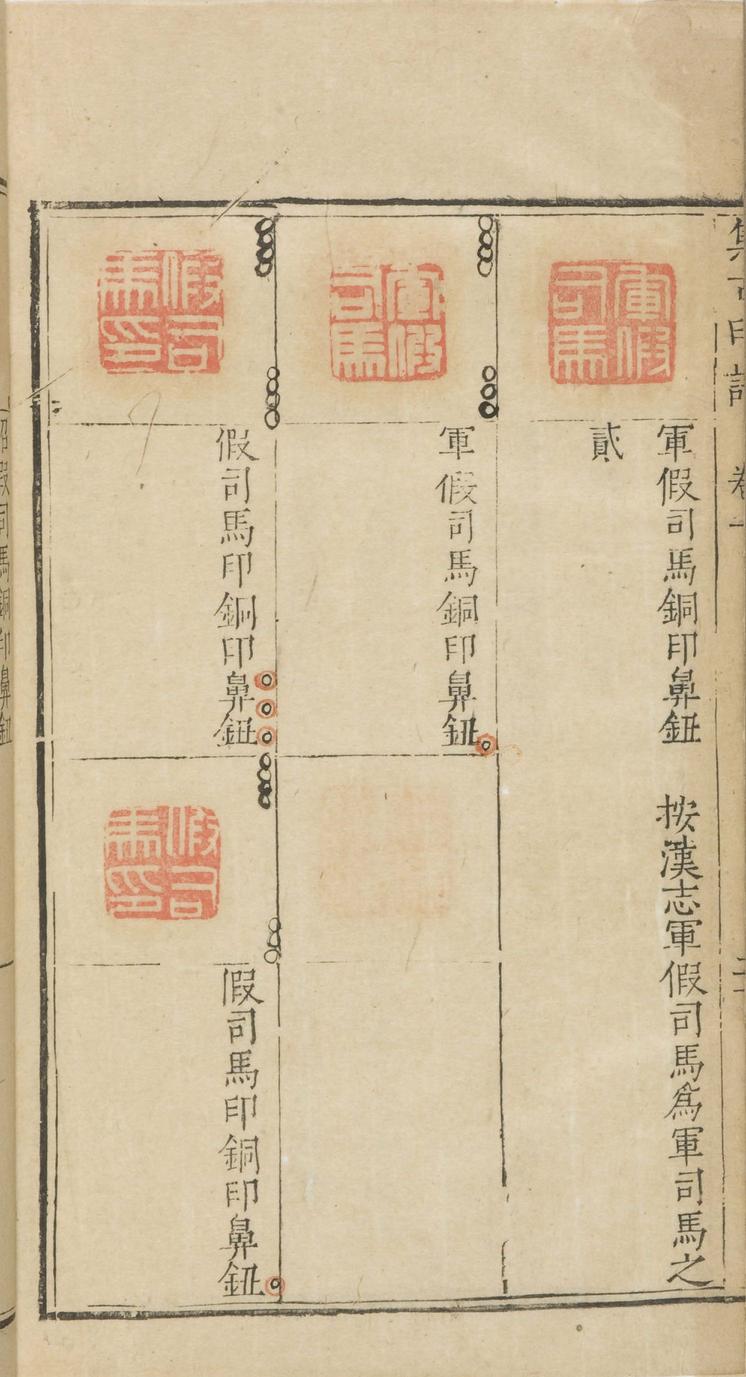 集古印譜 卷一
軍假司馬
軍假司馬銅印鼻鈕 按漢志軍假司馬爲軍司馬之
貳
軍假司馬
軍假司馬銅印鼻鈕
假司馬印
假司馬印銅印鼻鈕
假司馬印
假司馬印銅印鼻鈕
假司馬銅印鼻鈕